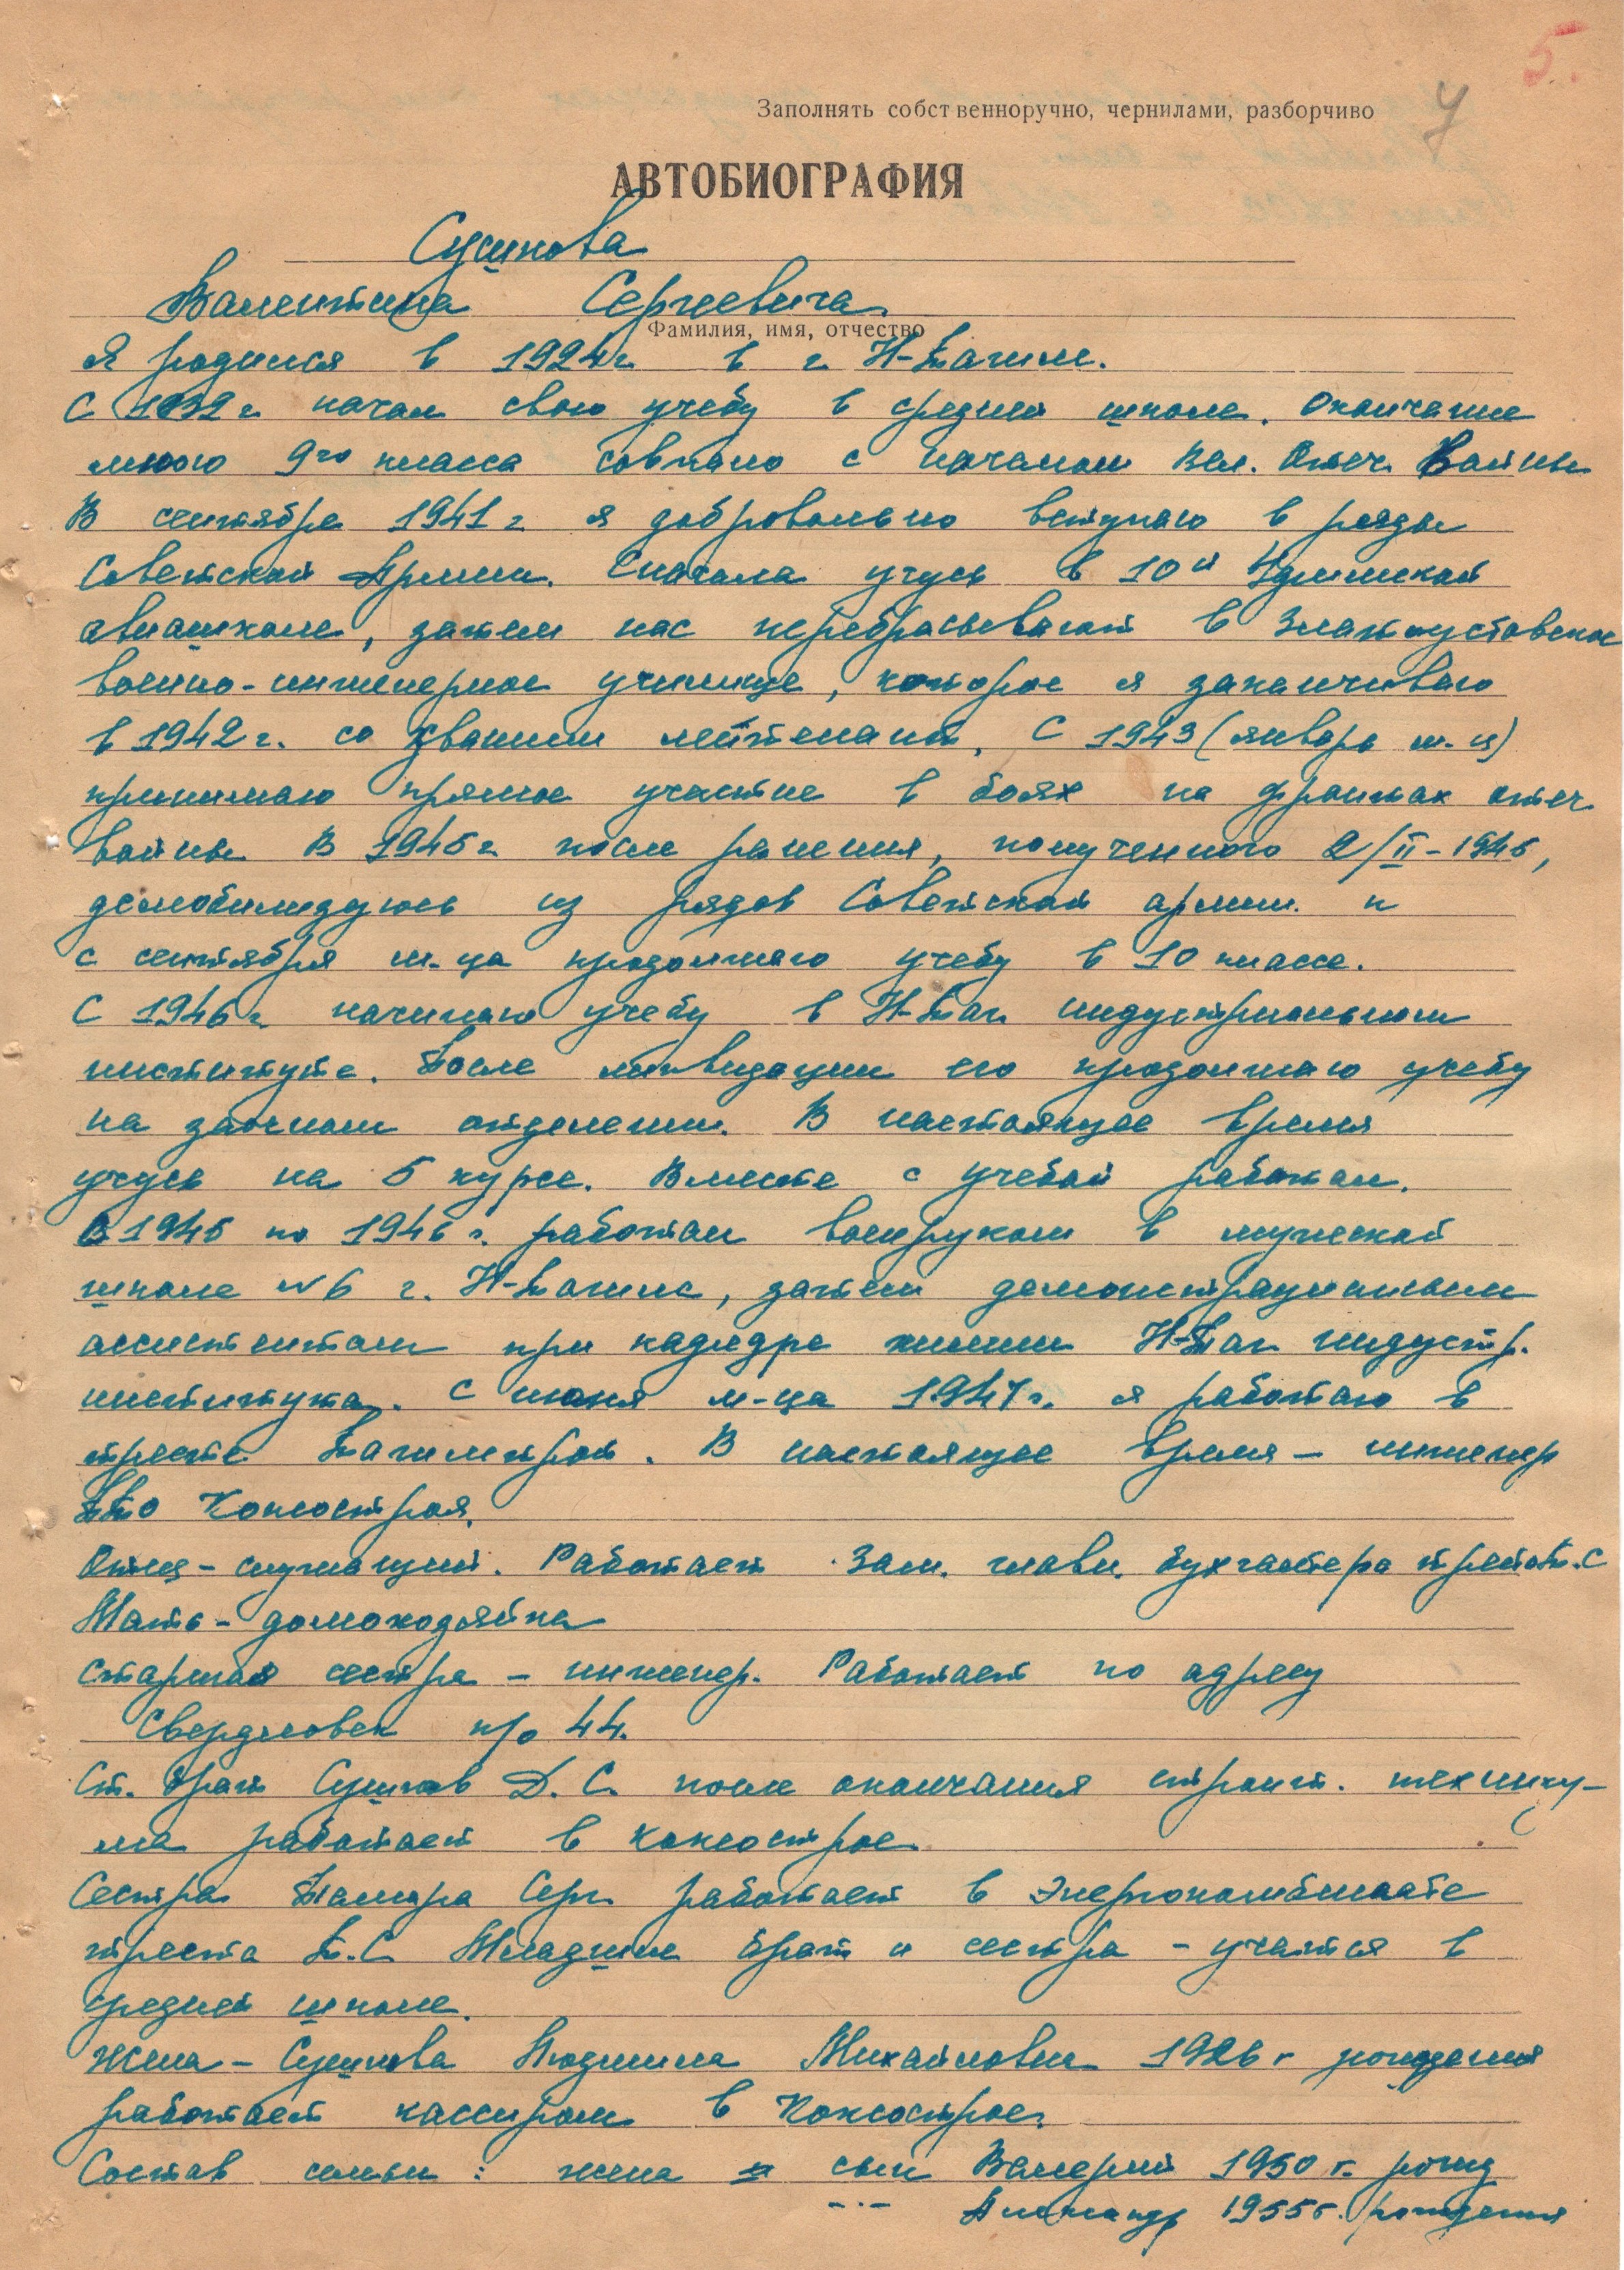 5.
7
Заполнять собственноручно, чернилами, разборчиво
АВТОБИОГРАФИЯ
Сушкова
Валентина Сергеевича
Фамилия, имя, отчество
Я родился в 1924 г. в г. Н-Тагиле.
С 1932 г. начал свою учебу в средней школе. Окончание
мною 9го класса совпало с началом Вел. Отеч. Войны
В сентябре 1941 г. я добровольно вступаю в ряды
Советской Армии. Сначала учусь в 10й
авиашколе, затем нас перебрасывают в Златоустовское
военно-инженерное училище, которое я заканчиваю
в 1942 г. со званием лейтенант. С 1943 (января м-ца)
принимаю прямое участие в боях на фронтах отеч.
войны. В 1945 г. после ранения, полученного 2/II-1945,
демобилизуюсь из рядов Советской армии и
с сентября м-ца продолжаю учебу в 10 классе.
С 1946 г. начинаю учебу в Н-Таг. индустриальном
институте. После ликвидации его продолжаю учебу
на заочном отделении. В настоящее время
учусь на 5 курсе. Вместе с учебой работал.
В 1945 по 1946 г. работал военруком в мужской
школе №6 г. Н-Тагила, затем демонстрационным
ассистентом при кафедре химии Н-Таг. индустр.
института. С июня м-ца 1947 г. я работаю в
тресте Тагилстрой. В настоящее время – инженер
ПТО Коксостроя.
Отец – служащий. Работает Зам. главн. бухгалтера треста Т.С
Мать – домохозяйка
Старшая сестра – инженер. Работает по адресу
Свердловск п/о 44.
Ст. брат Сушков Д. С. после окончания строит. технику-
ма работает в Коксострое
Сестра Тамара Серг. работает в Энергокомбинате
треста Т.С. Младшие брат и сестра – учатся в
средней школе.
Жена – Сушкова Людмила Михайловна 1926 г. рождения
работает кассиром в Коксострое.
Состав семьи: жена и сын Валерий 1950 г. рожд
-"- Александр 1955 г. рождения